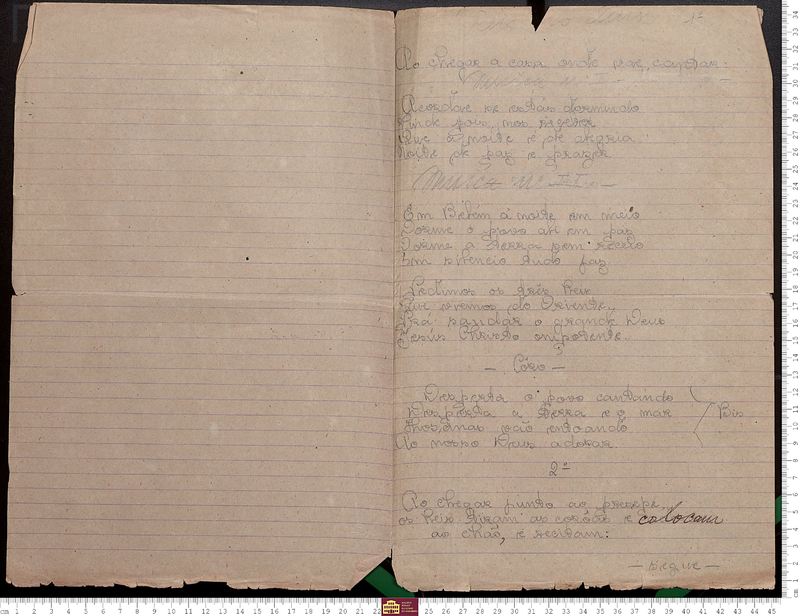 1ª
Ao chegar a casa onde vae, cantar:
Musica nº I
Acordae se estais dormindo
Vinde pois, nos receber
Que a noite é de alegria
Noite de paz e prazer
Musica nº II
Em Belém á noite em meio
Dorme o povo ali em paz
Dorme a terra sem receio
Em silencio tudo faz
Pedimos os três Reis
Que viemos do Oriente
Prá saudar o grande Deus
Jesús Christo onipotente.
— Côro —
Desperta o povo cantando
Desperta a Terra e o mar
Hosanas vão entoando
Ao nosso Deus adorar
Bis
2ª
Ao chegar junto ao presepe
os Reis tiram as corôas e colocam
ao chão, e recitam:
— segue —